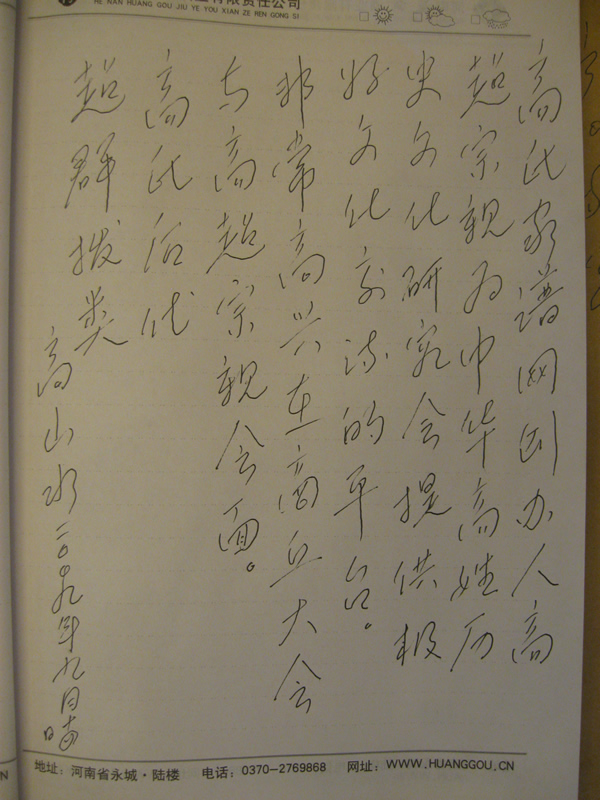 有限责任公司
HE NAN HUANG GOU JIU YE YOU XIAN ZE REN GONG SI
高氏家谱网创办人高
超宗亲为中华高姓历
史文化研究会提供极
好文化交流的平台。
非常高兴在商丘大会
与高超宗亲会面。
高氏后代
超群拔类
高山水二00九年九月
地址：河南省永城·陆楼 电话：0370-2769868 网址：WWW.HUANGGOU.CN